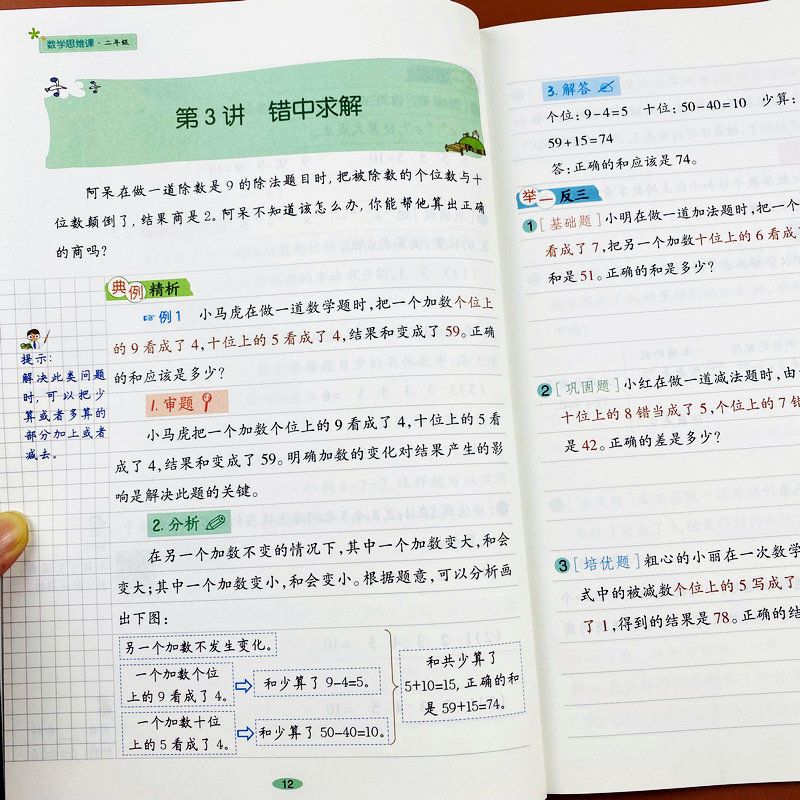 数学思维课·二年级
第3讲 错中求解
阿呆在做一道除数是9的除法题目时,把被除数的个位数与十
位数颠倒了,结果商是2。阿呆不知道该怎么办,你能帮他算出正确
的商吗?
典例精析
例1 小马虎在做一道数学题时,把一个加数个位上
的9看成了4,十位上的5看成了4,结果和变成了59。正确
的和应该是多少?
提示:
解决此类问题
时,可以把少
算或者多算的
部分加上或者
减去。
1.审题
小马虎把一个加数个位上的9看成了4,十位上的5看
成了4,结果和变成了59。明确加数的变化对结果产生的影
响是解决此题的关键。
2.分析
在另一个加数不变的情况下,其中一个加数变大,和会
变大;其中一个加数变小,和会变小。根据题意,可以分析画
出下图:
另一个加数不发生变化。
一个加数个位
上的9看成了4。
和少算了9-4=5。
一个加数十位
上的5看成了4。
和少算了50-40=10。
和共少算了
5+10=15,正确的和
是59+15=74。
12
3.解答
个位:9-4=5 十位:50-40=10 少算:
59+15=74
答:正确的和应该是74。
举一反三
1[基础题]小明在做一道加法题时,把一个
看成了7,把另一个加数十位上的6看成了
和是51。正确的和是多少?
2[巩固题]小红在做一道减法题时,由
十位上的8错当成了5,个位上的7错
是42。正确的差是多少?
3[培优题]粗心的小丽在一次数学
式中的被减数个位上的5写成了
了1,得到的结果是78。正确的结